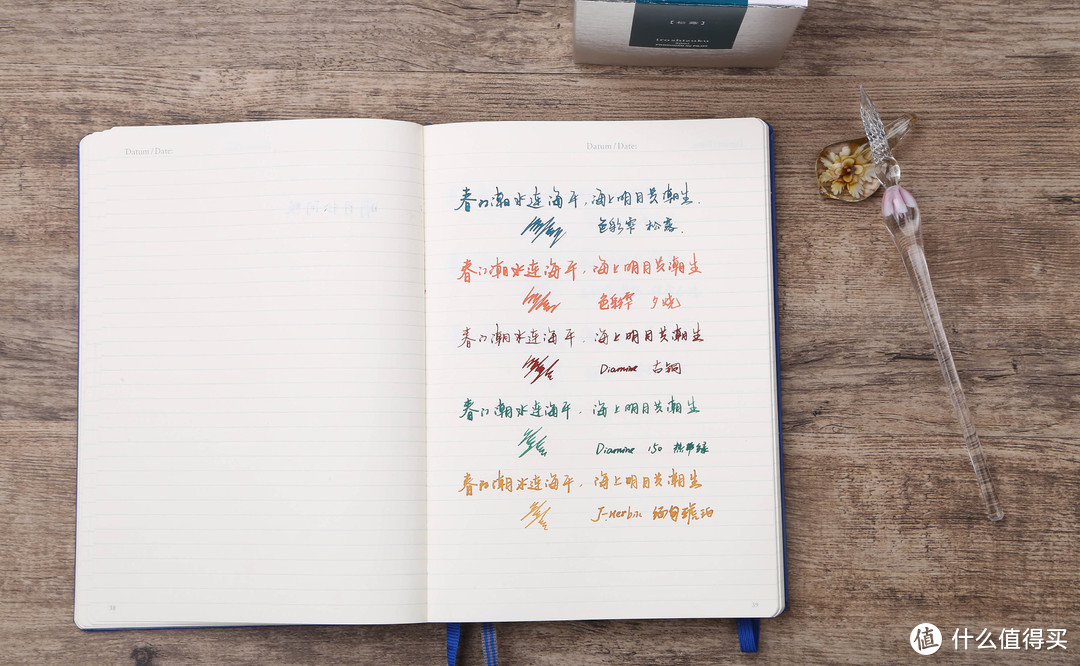 [松露]
iroshizuku
Datum / Date:
Datum / Date:
春江潮水连海平，海上明月共潮生.
色彩雫 松露.
春江潮水连海平，海上明月共潮生
色彩雫 夕烧
春江潮水连海平，海上明月共潮生
Diamine 古铜
春江潮水连海平，海上明月共潮生
Diamine 150 热带绿
春江潮水连海平，海上明月共潮生
J-Herbin 缅甸琥珀
值 什么值得买